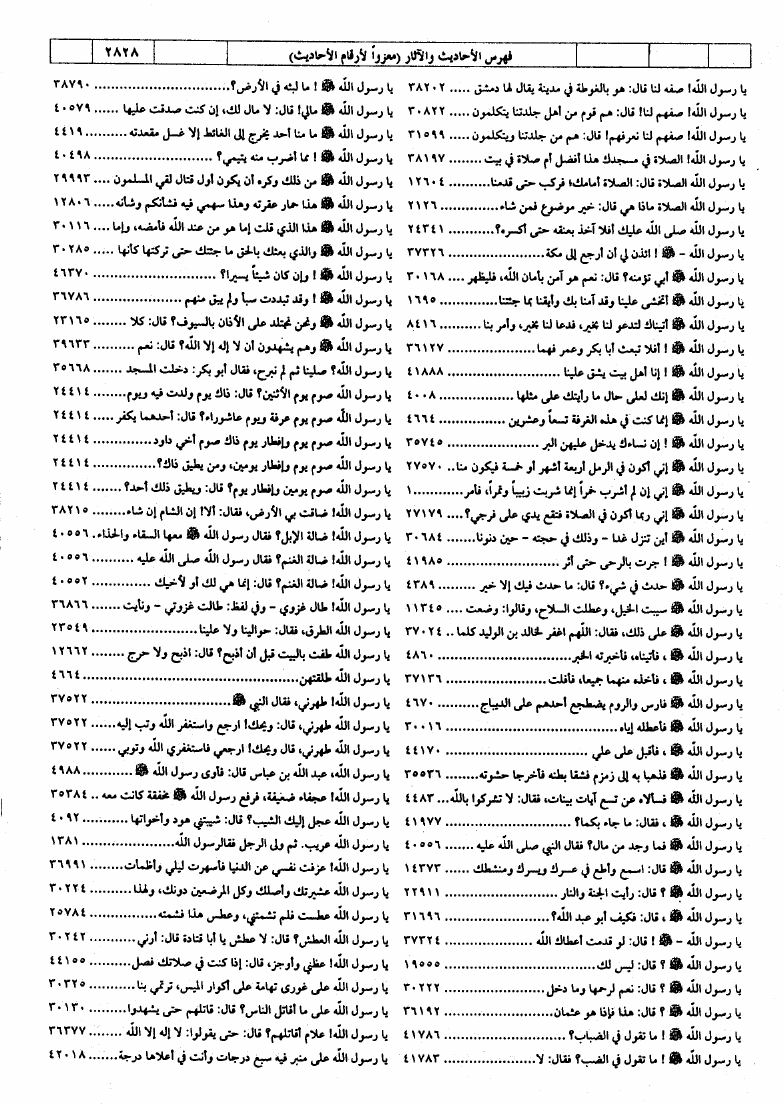 فهرس الأحاديث والآثار (معزواً لأرقام الأحاديث)
٢٨٢٨
يا رسول الله! صفه لنا قال: هو بالغوطة في مدينة يقال لها دمشق ..... ٣٨٢٠٢
يا رسول الله! صفهم لنا! قال: هم قوم من أهل جلدتنا يتكلمون ..... ٣٠٨٢٢
يا رسول الله! صفهم لنا نعرفهم! قال: هم من جلدتنا ويتكلمون ..... ٣١٥٩٩
يا رسول الله! الصلاة في مسجدك هذا أفضل أم صلاة في بيت ........ ٣٨١٩٧
يا رسول الله الصلاة قال: الصلاة أمامك؛ فركب حتى قدمنا .......... ١٢٦٠٤
يا رسول الله الصلاة ماذا هي قال: خير موضوع فمن شاء............. ٢١٢٦
يا رسول الله صلى الله عليك أفلا آخذ بعنقه حتى أكسره؟............ ٢٤٣٤١
يا رسول الله - ﷺ ! ائذن لي أن أرجع إلى مكة ........................ ٣٧٣٢٦
يا رسول الله ﷺ أبي تؤمنه؟ قال: نعم هو آمن بأمان الله، فليظهر .... ٣٠١٦٨
يا رسول الله ﷺ أتخشى علينا وقد آمنا بك وأيقنا بما جئتنا............. ١٦٩٥
يا رسول الله ﷺ أتيناك لتدعو لنا بخير، فدعا لنا بخير، وأمر بنا .......... ٨٤١٦
يا رسول الله ﷺ ! أفلا تبعث أبا بكر وعمر فهما...................... ٣٦١٢٧
يا رسول الله ﷺ ! إنا أهل بيت يشق علينا ............................ ٤١٨٨٨
يا رسول الله ﷺ إنك لعلى حال ما رأيتك على مثلها .................. ٤٠٠٨
يا رسول الله ﷺ إنما كنت في هذه الغرفة تسعاً وعشرين ............... ٤٦٦٤
يا رسول الله ﷺ ! إن نساءك يدخل عليهن البر ....................... ٣٥٧٤٥
يا رسول الله ﷺ إني أكون في الرمل أربعة أشهر أو خمسة فيكون منا.. ٢٧٥٧٠
يا رسول الله ﷺ إني إن لم أشرب خمراً إنما شربت زبيباً وتمراً، فأمر...........١
يا رسول الله ﷺ إني ربما أكون في الصلاة فتقع يدي على فرجي؟.... ٢٧١٧٩
يا رسول الله ﷺ أين تنزل غدا - وذلك في حجته - حين دنونا....... ٣٠٦٨٤
يا رسول الله ﷺ ! جرت بالرحى حتى أثر ............................ ٤١٩٨٥
يا رسول الله ﷺ حدث في شيء؟ قال: ما حدث فيك إلا خير ........ ٤٣٨٩
يا رسول الله ﷺ سيبت الخيل، وعطلت السلاح، وقالوا: وضعت .... ١١٣٤٥
يا رسول الله ﷺ على ذلك، فقال: اللهم اغفر لخالد بن الوليد كلما .. ٣٧٠٢٤
يا رسول الله ﷺ ، فأتيناه، فأخبرته الخبر................................ ٤٨٦٠
يا رسول الله ﷺ ، فأخذه منهما جميعا، فأفلت........................ ٣٧١٣٦
يا رسول الله ﷺ فارس والروم يضطجع أحدهم على الديباج ........... ٤٦٧٠
يا رسول الله ﷺ فأعطله إياه .......................................... ٣٠٠١٦
يا رسول الله ﷺ ، فأقبل على علي ................................... ٤٤١٧٠
يا رسول الله ﷺ فذهبا به إلى زمزم فشقا بطنه فأخرجا حشوته........ ٣٥٥٣٦
يا رسول الله ﷺ فسألاه عن تسع آيات بينات، فقال: لا تشركوا بالله... ٤٤٨٣
يا رسول الله ﷺ ، فقال: ما جاء بكما؟ ............................... ٤١٩٧٧
يا رسول الله ﷺ فما وجد من مال؟ فقال النبي صلى الله عليه ......... ٤٠٥٥٦
يا رسول الله ﷺ قال: اسمع وأطع في عسرك ويسرك ومنشطك ....... ١٤٣٧٣
يا رسول الله ﷺ ؟ قال: رأيت الجنة والنار ............................ ٢٢٩١١
يا رسول الله ﷺ ، قال: فكيف أبو عبد الله؟.......................... ٣١٦٩٦
يا رسول الله - ﷺ ! قال: لو قدمت أعطاك الله ....................... ٣٧٣٢٤
يا رسول الله ﷺ ؟ قال: ليس لك..................................... ١٩٥٥٥
يا رسول الله ﷺ ؟ قال: نعم لرحمها وما دخل ........................ ٣٠٢٢٢
يا رسول الله ﷺ ؟ قال: هذا فإذا هو عثمان .......................... ٣٦١٩٢
يا رسول الله ﷺ ! ما تقول في الضباب؟............................. ٤١٧٨٦
يا رسول الله ﷺ ! ما تقول في الضب؟ فقال: لا...................... ٤١٧٨٣
يا رسول الله ﷺ ! ما لبثه في الأرض؟................................. ٣٨٧٩٠
يا رسول الله ﷺ مالي! قال: لا مال لك، إن كنت صدقت عليها ...... ٤٠٥٧٩
يا رسول الله ﷺ ما منا أحد يخرج إلى الغائط إلا غسل مقعدته ......... ٤٤١٩
يا رسول الله ﷺ ! مما أضرب منه يتيمي؟............................ ٤٠٤٩٨
يا رسول الله ﷺ من ذلك وكره أن يكون أول قتال لقي المسلمون .... ٢٩٩٩٣
يا رسول الله ﷺ هذا حمار عقرته وهذا سهمي فيه فشانكم وشأنه..... ١٢٨٠٦
يا رسول الله ﷺ هذا الذي قلت إما هو من عند الله فأمضه، وإما ..... ٣٠١١٦
يا رسول الله ﷺ والذي بعثك بالحق ما جئتك حتى تركتها كأنها ...... ٣٠٢٨٥
يا رسول الله ﷺ ! وإن كان شيئاً يسيرا؟.............................. ٤٦٣٧٠
يا رسول الله ﷺ ! وقد تبددت سبأ ولم يبق منهم .................... ٣٦٧٨٦
يا رسول الله ﷺ ونحن نجتلد على الأذان بالسيوف؟ قال: كلا ........ ٢٣١٦٥
يا رسول الله ﷺ وهم يشهدون أن لا إله إلا الله؟ قال: نعم .......... ٣٩٦٣٣
يا رسول الله؟ صلينا ثم لم نبرح، فقال أبو بكر: دخلت المسجد ....... ٣٥٦٦٨
يا رسول الله صوم يوم الأثنين؟ قال: ذاك يوم ولدت فيه ويوم......... ٢٤٤١٤
يا رسول الله صوم يوم عرفة ويوم عاشوراء؟ قال: أحدهما يكفر ....... ٢٤٤١٤
يا رسول الله صوم يوم وإفطار يوم ذاك صوم أخي داود.............. ٢٤٤١٤
يا رسول الله صوم يوم وإفطار يومين، ومن يطيق ذاك؟............... ٢٤٤١٤
يا رسول الله صوم يومين وإفطار يوم؟ قال: ويطيق ذلك أحد؟....... ٢٤٤١٤
يا رسول الله! ضاقت بي الأرض، فقال: ألا! إن الشام إن شاء........ ٣٨٢١٥
يا رسول الله! ضالة الإبل؟ فقال رسول الله ﷺ معها السقاء والحذاء. ٤٠٥٥٦
يا رسول الله! ضالة الغنم؟ فقال رسول الله صلى الله عليه ............ ٤٠٥٥٦
يا رسول الله! ضالة الغنم؟ قال: إنما هي لك أو لأخيك .............. ٤٠٥٥٢
يا رسول الله! طال غزوي - وفي لفظ: طالت غزوتي - ونأيت ....... ٣٦٨٦٦
يا رسول الله الطرق، فقال: حوالينا ولا علينا .......................... ٢٣٥٤٩
يا رسول الله طفت بالبيت قبل أن أذبح؟ قال: اذبح ولا حرج ........ ١٢٦٦٢
يا رسول الله طلقتهن.................................................... ٤٦٦٤
يا رسول الله! طهرني، فقال النبي ﷺ ................................. ٣٧٥٢٢
يا رسول الله طهرني، قال: ويحك! ارجع واستغفر الله وتب إليه........ ٣٧٥٢٢
يا رسول الله طهرني، قال ويحك! ارجعي فاستغفري الله وتوبي ........ ٣٧٥٢٢
يا رسول الله، عبد الله بن عباس قال: فآوى رسول الله ﷺ ............ ٤٩٨٨
يا رسول الله! عجفاء ضعيفة، فرفع رسول الله ﷺ مخفقة كانت معه .. ٣٥٣٨٤
يا رسول الله عجل إليك الشيب؟ قال: شيبتني هود وأخواتها........... ٤٠٩٢
يا رسول الله عريب. ثم ولى الرجل فقالرسول الله........................ ١٣٨١
يا رسول الله! عزفت نفسي عن الدنيا فأسهرت ليلي وأظمات........ ٣٦٩٩١
يا رسول الله عشيرتك وأصلك وكل المرضعين دونك، ولهذا ........... ٣٠٢٢٤
يا رسول الله عطست فلم تشمتني، وعطس هذا فشمته............... ٢٥٧٨٤
يا رسول الله العطش؟ قال: لا عطش يا أبا قتادة قال: أرني .......... ٣٠٢٤٢
يا رسول الله! عظني وأوجز، قال: إذا كنت في صلاتك فصل ........ ٤٤١٥٥
يا رسول الله على غورى تهامة على أكوار الميس، ترتمي بنا ........... ٣٠٣٢٥
يا رسول الله على ما أقاتل الناس؟ قال: قاتلهم حتى يشهدوا......... ٣٠١٣٠
يا رسول الله! علام أقاتلهم؟ قال: حتى يقولوا: لا إله إلا الله ........ ٣٦٣٧٧
يا رسول الله على منبر فيه سبع درجات وأنت في أعلاها درجة....... ٤٢٠١٨